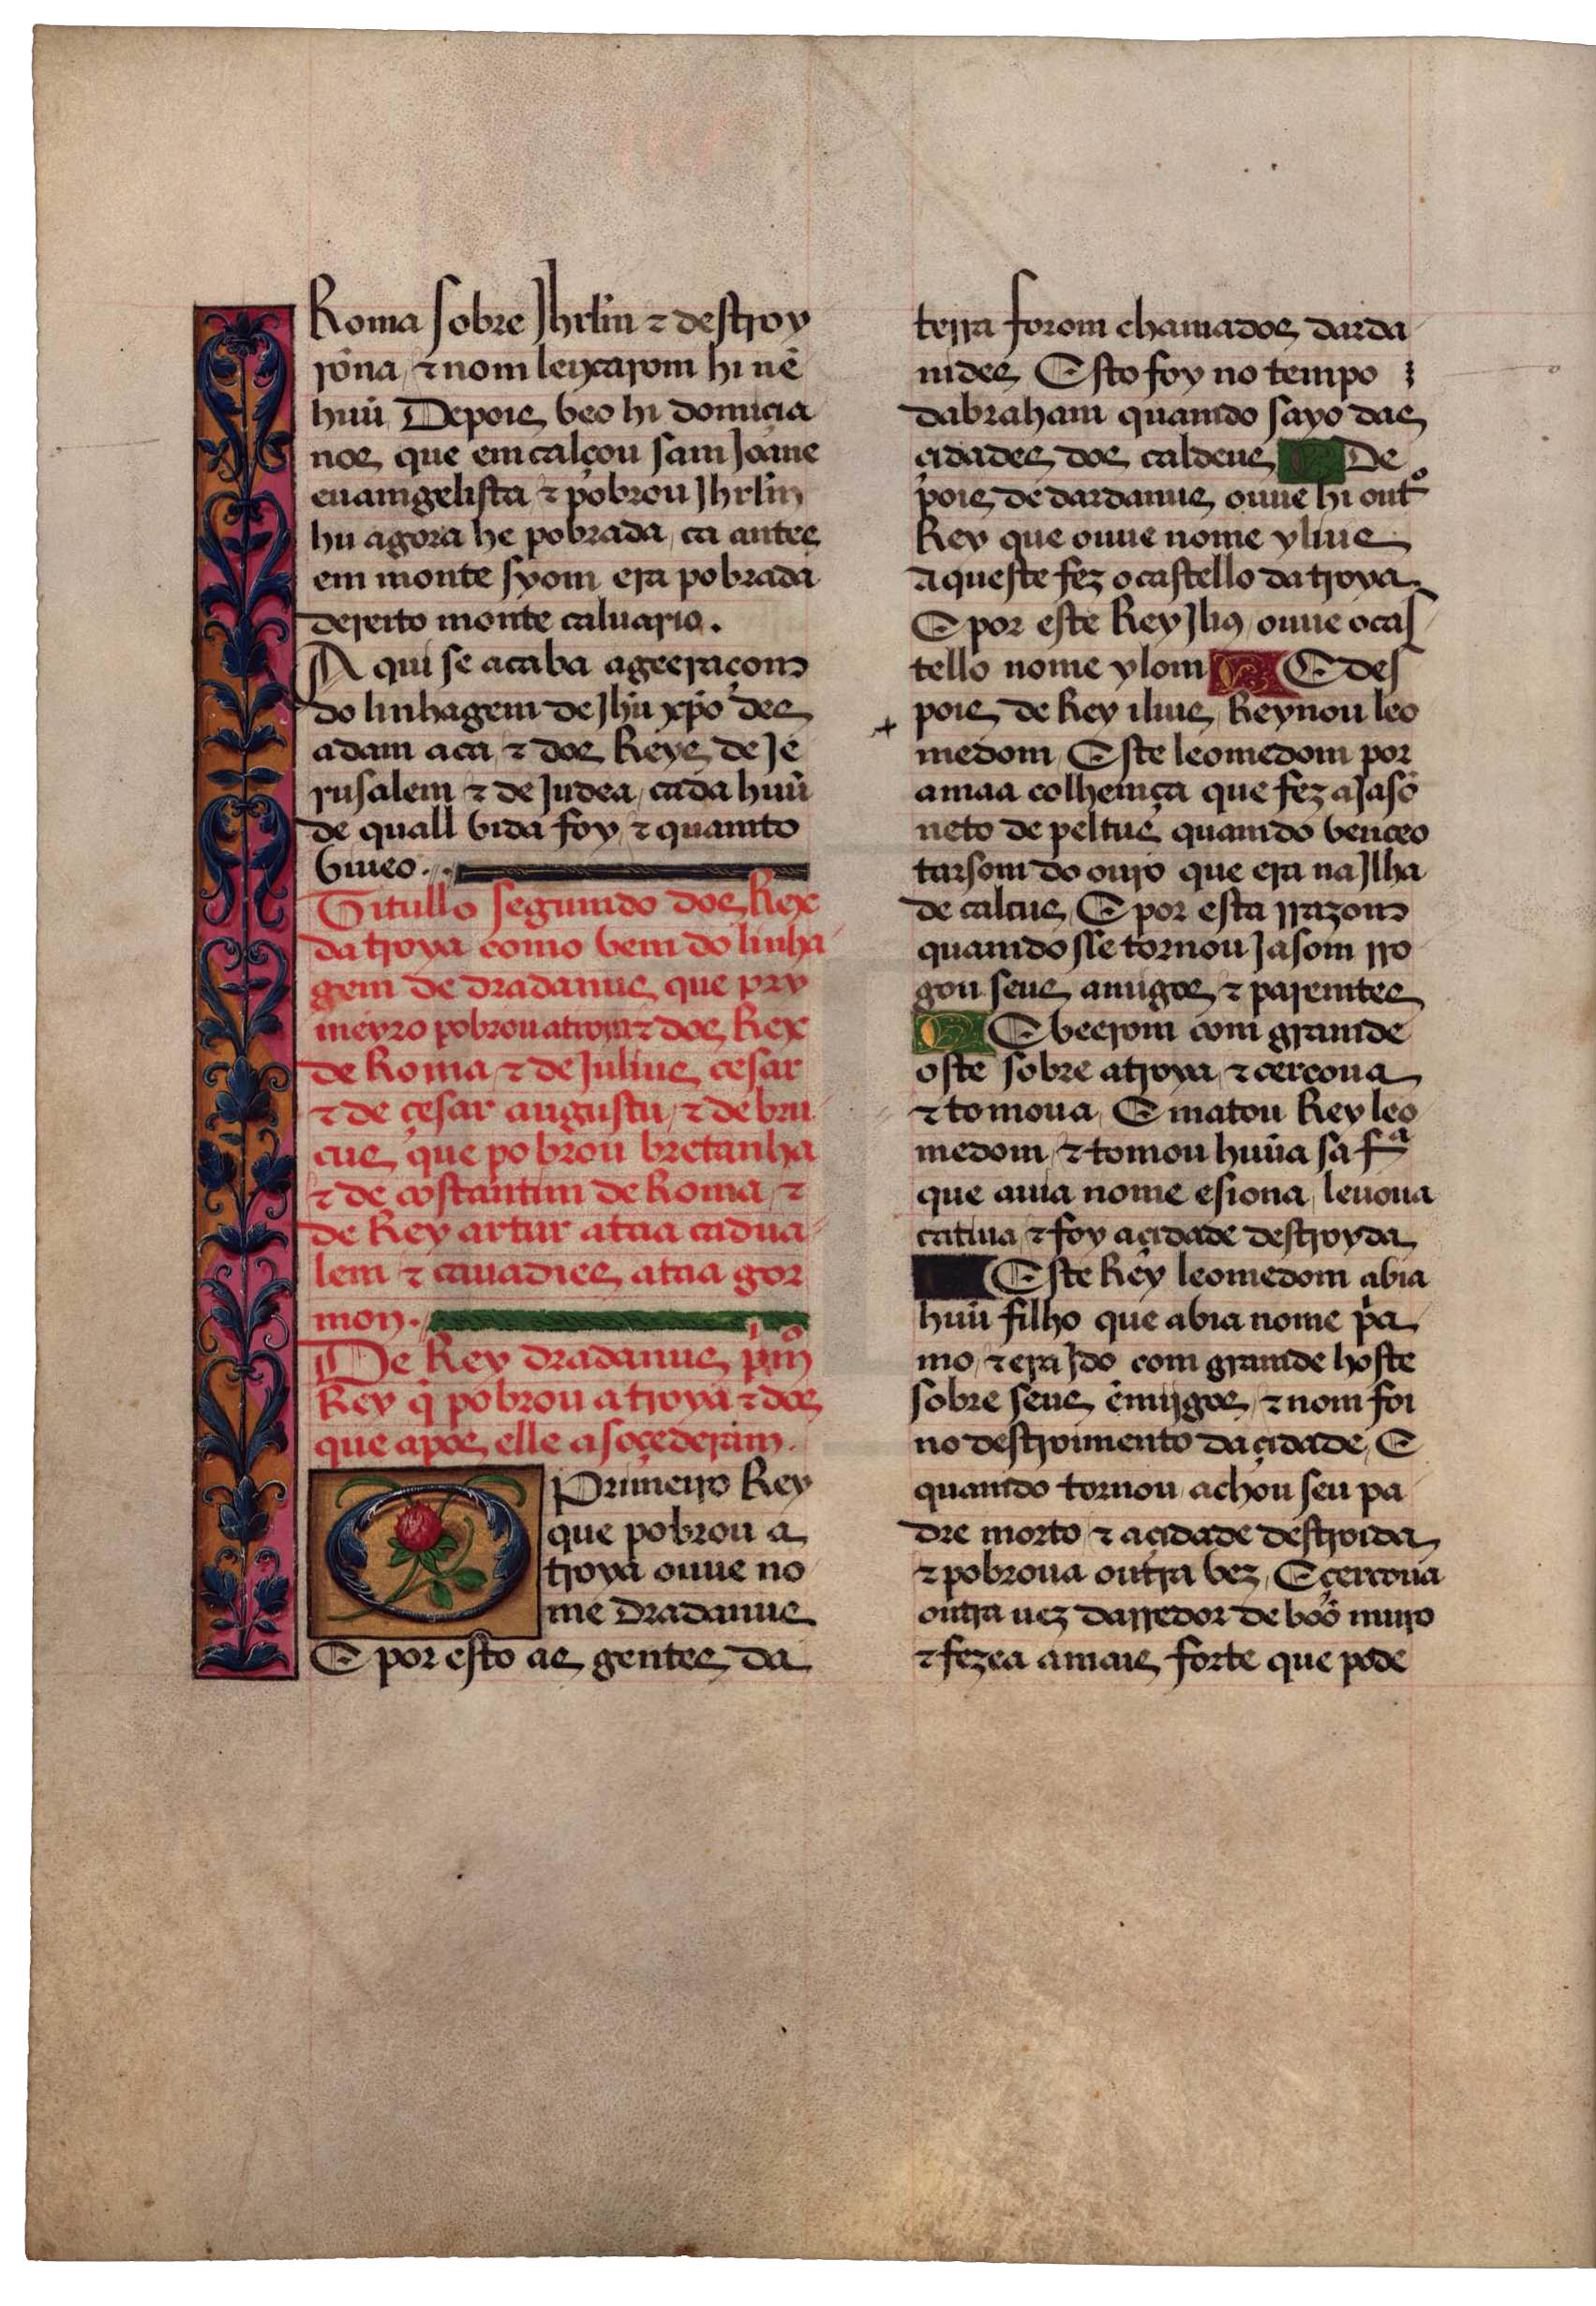 Roma sobre Jhrl̃m ⁊ destroy
rõna, ⁊ nom leixarom hi nẽ
huũ, Depois, veo hi domiçia
nos, que emcalçou sam Joane
euamgelista ⁊ pobrou Jhrl̃m
hu agora he pobrada, ca antes
em monte syom era pobrada
dereito monte caluario.
Aqui se acaba a geeraçom
do linhagem de Jhũ xp̃o des
adam aca, ⁊ dos Reys, de Je
rusalem ⁊ de Judea, cada huũ
de quall vida foy, ⁊ quamto
viueo.
Titullo segumdo dos Rex
da troya como vem do linha
gem de dradanus, que pry
meyro pobrou a troya ⁊ dos Rex
de Roma, ⁊ de Julius, cesar
⁊ de çesar augustu, ⁊ de bru
cus, que pobrou bretanha
⁊ de costantim de Roma, ⁊
de Rey artur ataa cadua
lem ⁊ cauadres, ataa gor
mon.
De Rey dradanus, pͥmº
Rey q̃ pobrou a troya ⁊ dos
que apos, elle a soçederam.
O Primeiro Rey
que pobrou a
troya ouue no
me Dradanus
E por esto as, gentes, da
terra forom chamados, darda
nides, Esto foy no tempo
dabraham quamdo sayo das
çidades, dos caldeus, De
pois, de dardanus, ouue hi outº
Rey que ouue nome ylius
aqueste fez o castello da troya.
E por este Rey Jliꝰ, ouue o cas
tello nome ylom E des
pois, de Rey ilius, Reynou leo
medom, Este leomedom por
a maa colhemça que fez a Jasõ
neto de peltus, quamdo vençeo
tarsom do ouro que era na Jlha
de calcus, E por esta rrazom
quamdo sse tornou Jasom rro
gou seus, amigos, ⁊ paremtes
E veerom com gramde
oste sobre a troya, ⁊ cercoua
⁊ tomoua, E matou Rey leo
medom, ⁊ tomou huũa sa fª
que auia nome esiona, leuoua
catiua, ⁊ foy a çidade destroyda
Este Rey leomedom abia
huũ filho que abia nome pͥa
mo, ⁊ era Jdo com gramde hoste
sobre seus, ẽmijgos, ⁊ nom foi
no destroimento da çidade, E
quamdo tornou achou seu pa
dre morto ⁊ a çidade destroida
⁊ pobroua outra vez, E çercoua
outra uez darredor de boõ muro
⁊ fezea a mais, forte que pode